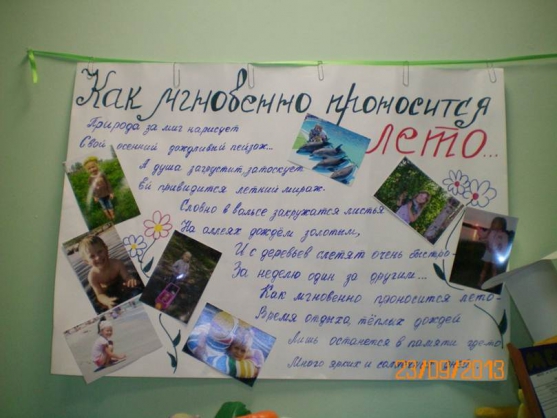 Как мгновенно проносится
лето...
Природа за миг нарисует
Свой осенний дождливый пейзаж...
А душа загрустит, затоскует
Ей привидится летний мираж.
Словно в вальсе закружатся листья
На аллеях дождём золотым,
И с деревьев слетят очень быстро
За неделю один за другим...
Как мгновенно проносится лето-
Время отдыха, тёплых дождей
Лишь останется в памяти где-то
Много ярких и солнечных дней
23/09/2013